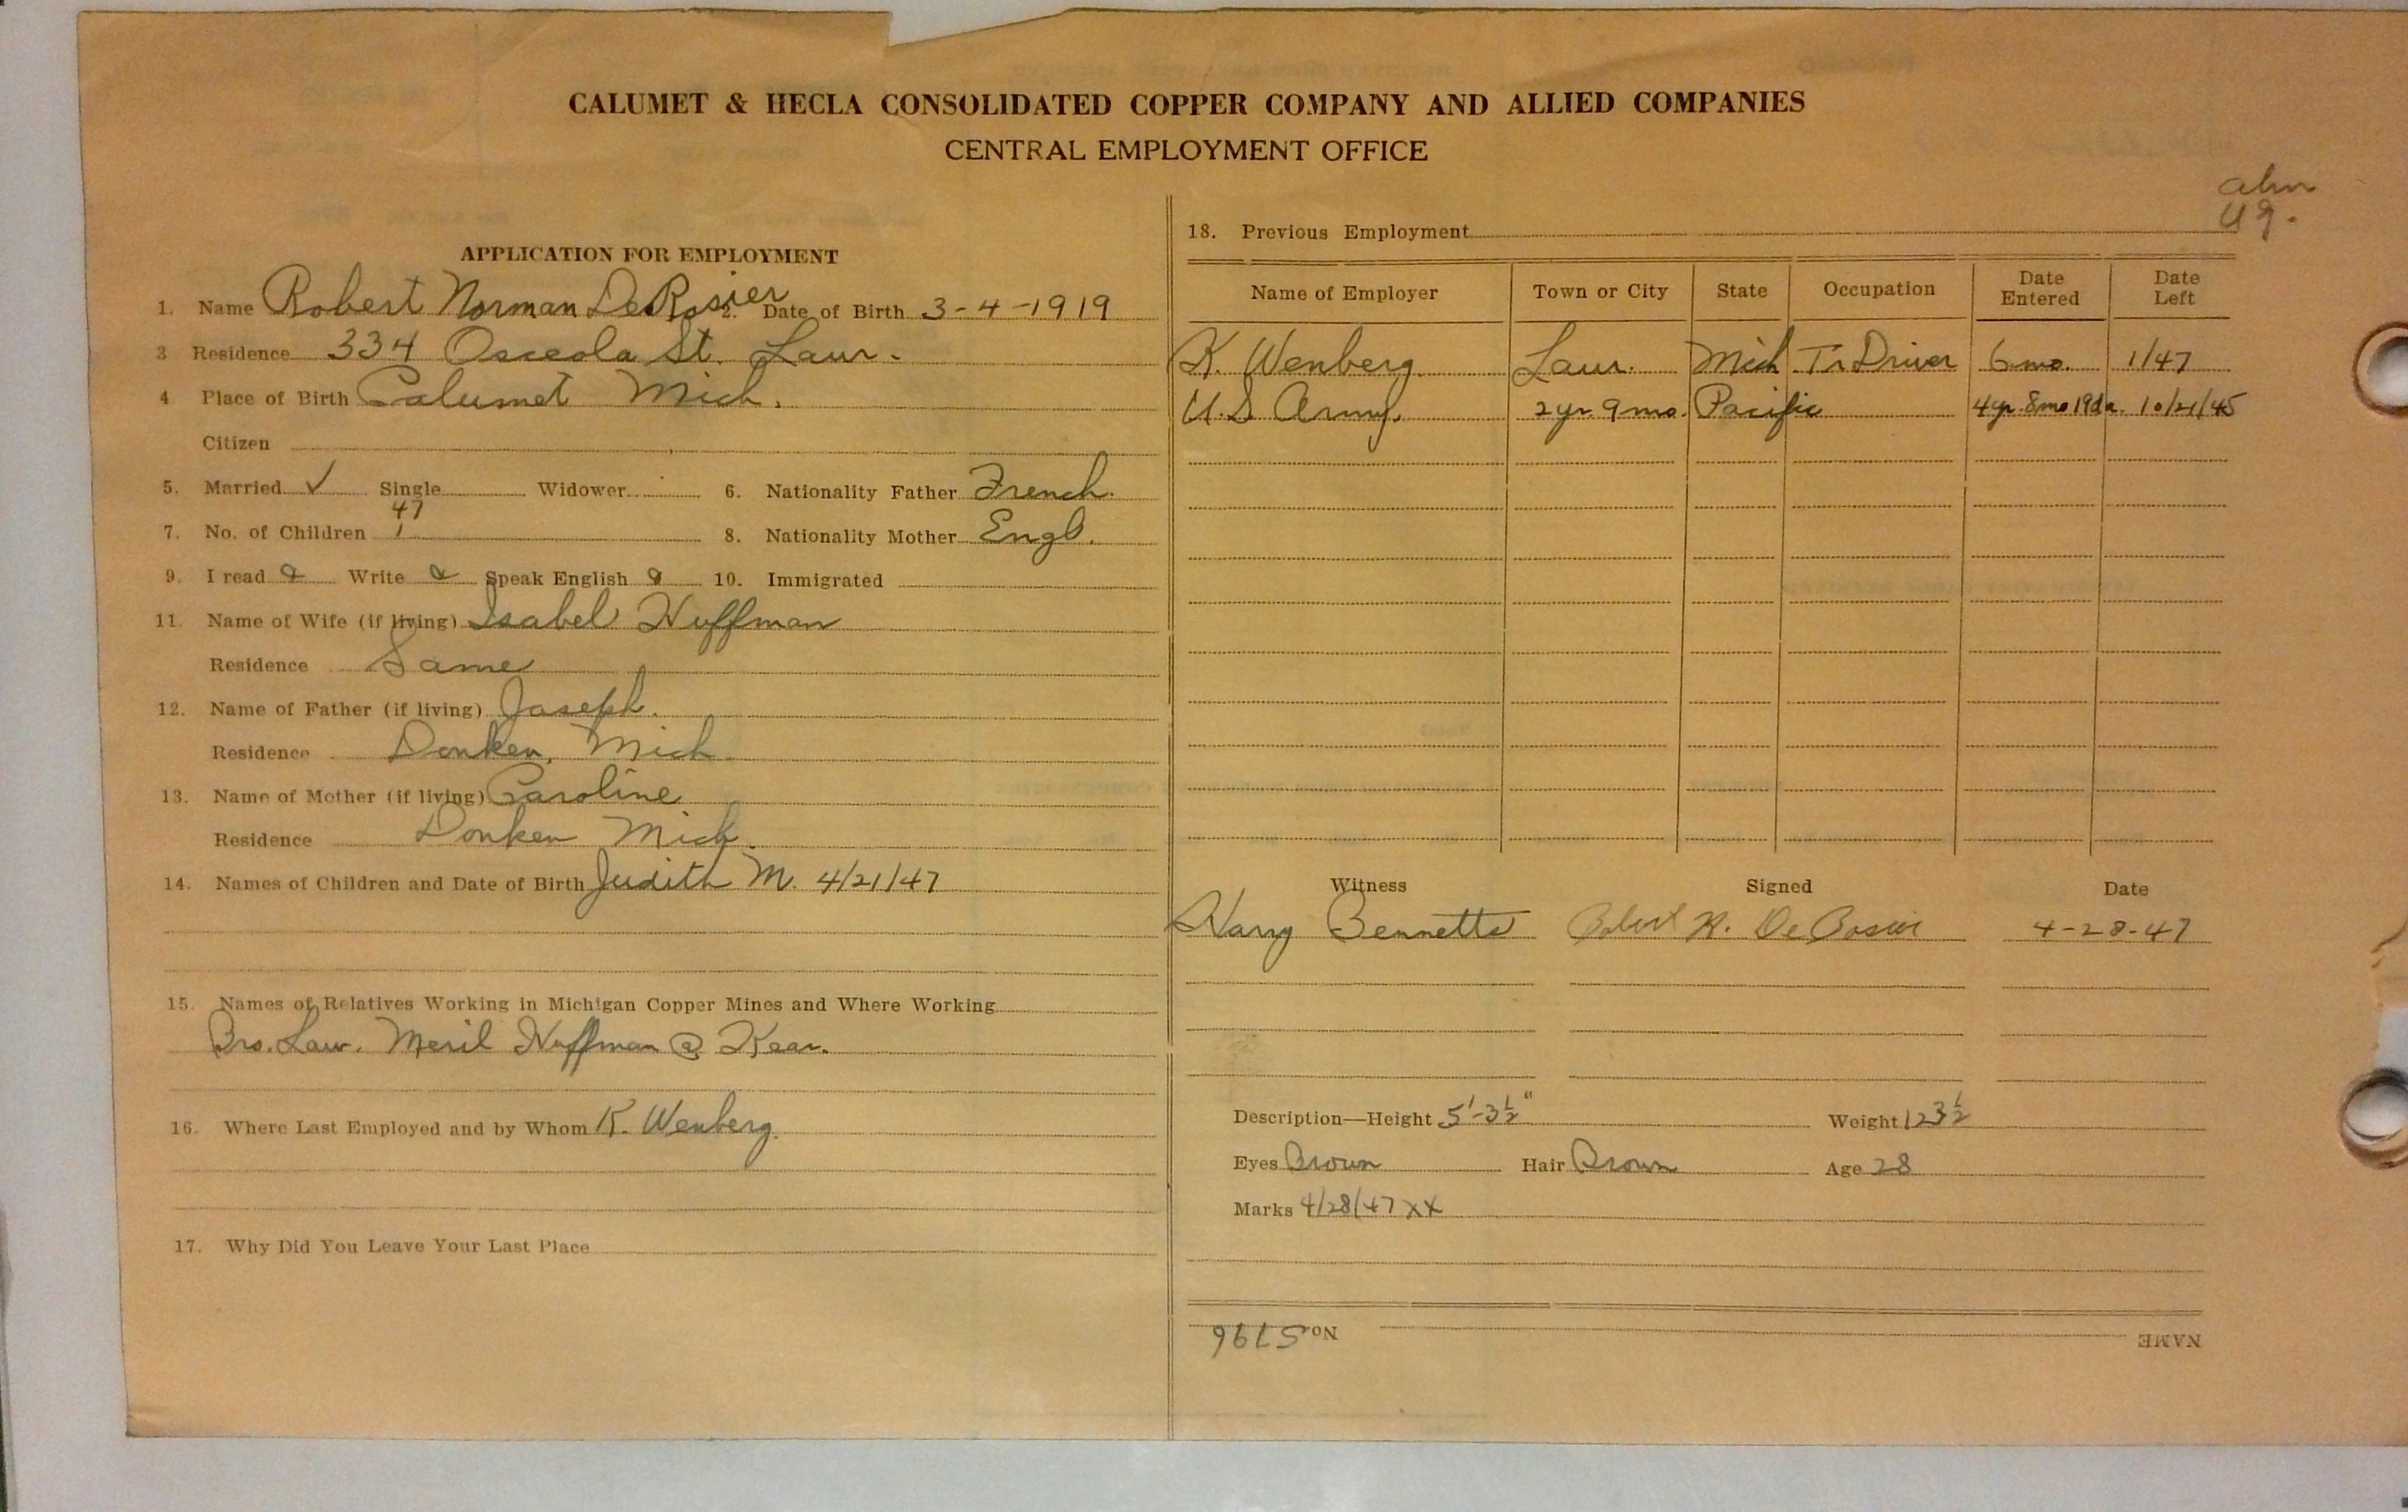 CALUMET & HECLA CONSOLIDATED COPPER COMPANY AND ALLIED COMPANIES
CENTRAL EMPLOYMENT OFFICE
APPLICATION FOR EMPLOYMENT
1. Name Robert Norman DeRosier 2. Date of Birth 3-4-1919
3 Residence 334 Osceola St. Laur.
4 Place of Birth Calumet Mich.
Citizen
5. Married ✓ Single Widower 6. Nationality Father French.
47
7. No. of Children 1 8. Nationality Mother Engl.
9. I read Write Speak English 10. Immigrated
11. Name of Wife (if living) Isabel Huffman
Residence Same
12. Name of Father (if living) Joseph.
Residence Donken, Mich.
13. Name of Mother (if living) Caroline
Residence Donken Mich.
14. Names of Children and Date of Birth Judith M. 4/21/47
15. Names of Relatives Working in Michigan Copper Mines and Where Working
Bro. Law. Meril Huffman @ Kear.
16. Where Last Employed and by Whom K. Wenberg.
17. Why Did You Leave Your Last Place
18. Previous Employment
Name of Employer Town or City State Occupation Date Entered Date Left
K. Wenberg. Laur. Mich Tr Driver 6 mo. 1/47
U.S. Army. 2 yr. 9 mo. Pacific 4 yr. 8 mo 19 da. 10/21/45
Witness Signed Date
Harry Bennetts Robert N. DeRosier 4-28-47
Description—Height 5'-3½" Weight 123½
Eyes Brown Hair Brown Age 28
Marks 4/28/47 XX
No. 5796 NAME